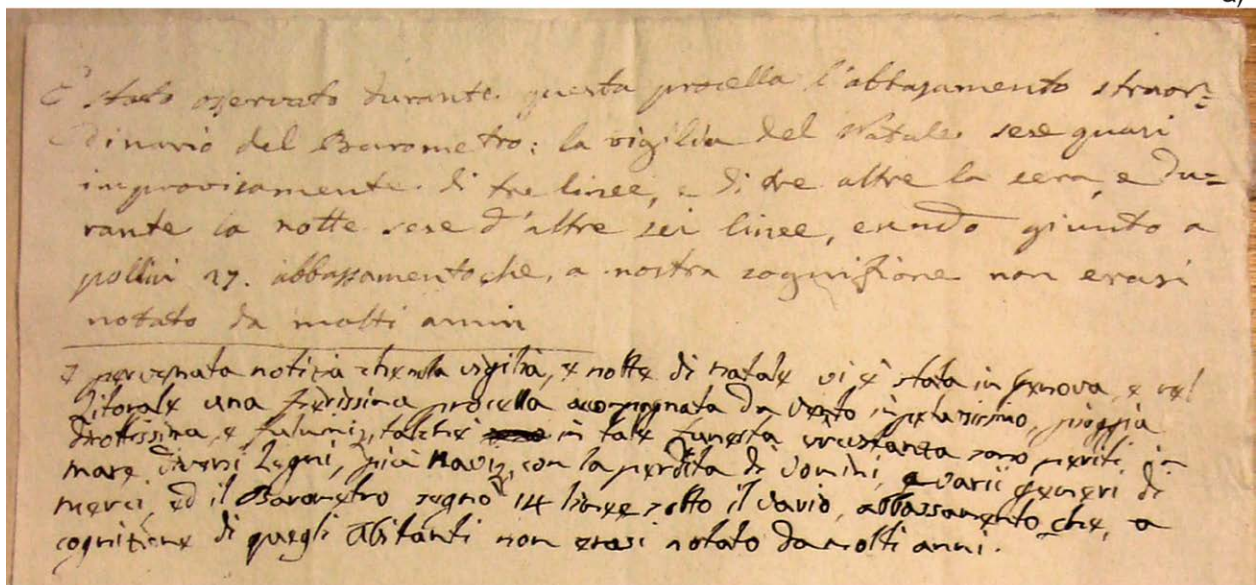 a)
È stato osservato durante questa procella l'abbassamento straor=
dinario del Barometro: la vigilia del Natale scese quasi
improvisamente di tre linee, e di tre altre la sera, e du=
rante la notte scese d'altre sei linee, essendo giunto a
pollici 27. abbassamento che, a nostra cognizione non erasi
notato da molti anni
È pervenuta notizia che nella vigilia, e notte di natale vi è stata in Genova, e nel
Litorale una fierissima procella accompagnata da vento impetuosissimo, pioggia
dirottissima, e fulmini, talchè in tale funesta circostanza sono periti in
mare diversi Legni, più Navi, con la perdita di Uomini, e varii generi di
merci, ed il Barometro segnò 14 linee sotto il vario, abbassamento che, a
cognizione di quegli Abitanti non erasi notato da molti anni.